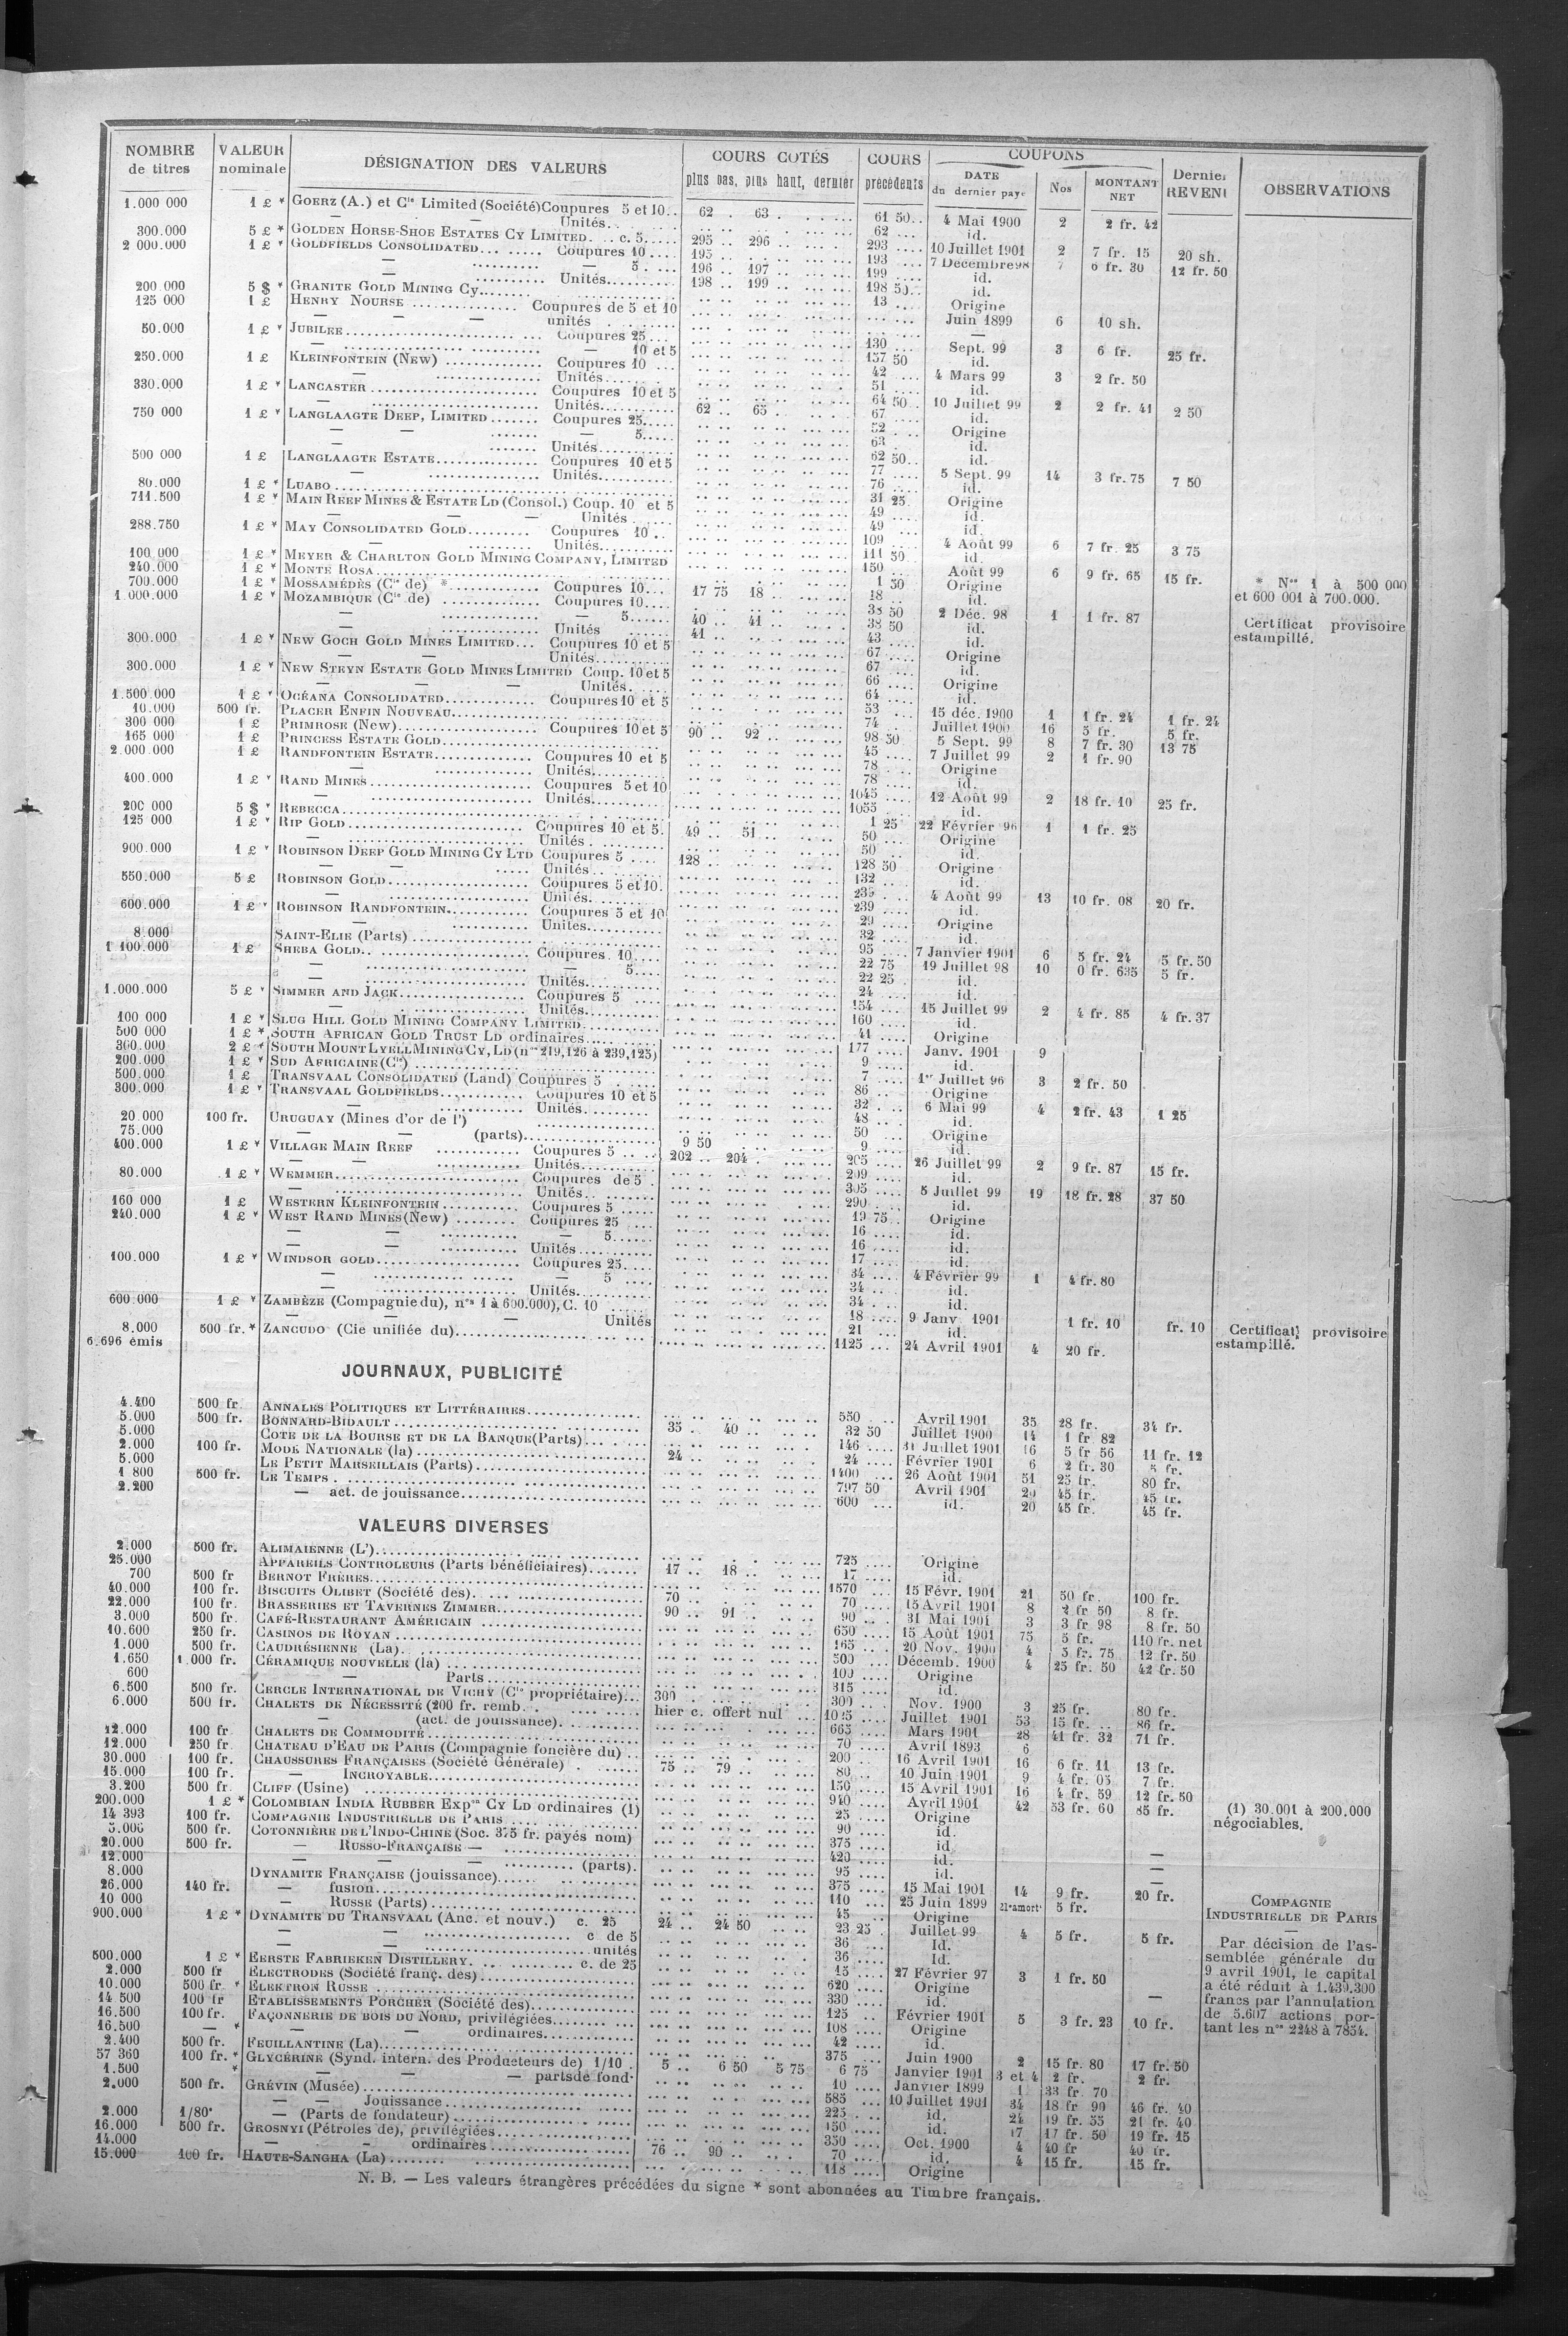 NOMBRE de titres | VALEUR nominale | DÉSIGNATION DES VALEURS | COURS COTÉS plus bas, plus haut, dernier | COURS précédents | COUPONS DATE du dernier payé | Nos | MONTANT NET | Dernier REVENU | OBSERVATIONS
1.000 000 1 £ * GOERZ (A.) et Cie Limited (Société) Coupures 5 et 10.. 62 . 63 . 61 50.. 4 Mai 1900 2 2 fr. 42
— — Unités.. 62 ... id.
300.000 5 £ * GOLDEN HORSE-SHOE ESTATES CY LIMITED. .. c. 5..... 295 .. 296 .. 293 .... 10 Juillet 1901 2 7 fr. 15 20 sh.
2 000.000 1 £ * GOLDFIELDS CONSOLIDATED... ..... Coupures 10 .... 195 193 .... 7 Décembre 98 7 6 fr. 30 12 fr. 50
— ......... — 5. ... 196 .. 197 .. 199 .... id.
— ......... Unités.......... 198 .. 199 ... 198 50.. id.
200 000 5 $ * GRANITE GOLD MINING Cy....... 13 ... Origine
125 000 1 £ HENRY NOURSE ............... Coupures de 5 et 10 Juin 1899 6 10 sh.
— — — unités . —
50.000 1 £ * JUBILEE........................ Coupures 25 ... 130 ... Sept. 99 3 6 fr. 25 fr.
— ......... — 10 et 5 157 50 id.
250.000 1 £ KLEINFONTEIN (New) .............. Coupures 10 ... 42 .... 4 Mars 99 3 2 fr. 50
— ......... Unités........ 51 .... id.
330.000 1 £ * LANCASTER ........................ Coupures 10 et 5 64 50.. 10 Juillet 99 2 2 fr. 41 2 50
— ......... Unités........... 62 .. 65 .. 67 .... id.
750 000 1 £ * LANGLAAGTE DEEP, LIMITED ....... Coupures 25..... 52 . ... Origine
— — ....... — 5..... 63 ... id.
— — ....... Unités........... 62 50.. id.
500 000 1 £ LANGLAAGTE ESTATE............... Coupures 10 et 5 77 .... 5 Sept. 99 14 3 fr. 75 7 50
— ......... Unités........... 76 .... id.
80.000 1 £ * LUABO ............ 31 25. Origine
711.500 1 £ * MAIN REEF MINES & ESTATE LD (Consol.) Coup. 10 et 5 49 .... id.
— — Unités ...... 49 .... id.
288.750 1 £ * MAY CONSOLIDATED GOLD......... Coupures 10 .. 109 ... 4 Août 99 6 7 fr. 25 3 75
— ......... Unités........... 111 50 id.
100 000 1 £ * MEYER & CHARLTON GOLD MINING COMPANY, LIMITED 150 .... Août 99 6 9 fr. 65 15 fr.
240.000 1 £ * MONTE ROSA........................ 1 50 Origine
700.000 1 £ * MOSSAMÉDÈS (Cie de) *............. Coupures 10... 17 75 18 .. 18 .... id. * Nos 1 à 500 000 et 600 001 à 700.000.
1.000.000 1 £ * MOZAMBIQUE (Cie de) ............. Coupures 10.... 38 50 2 Déc. 98 1 1 fr. 87 Certificat provisoire estampillé.
— ......... — 5...... 40 .. 41 .. 38 50 id.
— ......... Unités ...... 41 .. 43 .... id.
300.000 1 £ * NEW GOCH GOLD MINES LIMITED... Coupures 10 et 5 67 .... Origine
— — Unités........... 67 .... id.
300.000 1 £ * NEW STEYN ESTATE GOLD MINES LIMITED Coup. 10 et 5 66 .... Origine
— — — Unités...... 64 .... id.
1.500.000 1 £ * OCÉANA CONSOLIDATED............. Coupures 10 et 5 53 ... 15 déc. 1900 1 1 fr. 24 1 fr. 24
10.000 500 fr. PLACER ENFIN NOUVEAU............ 74 .... Juillet 1900 16 5 fr. 5 fr.
300 000 1 £ PRIMROSE (New)................... Coupures 10 et 5 90 .. 92 .. 98 50 5 Sept. 99 8 7 fr. 30 13 75
165 000 1 £ PRINCESS ESTATE GOLD.............. 45 .... 7 Juillet 99 2 1 fr. 90
2.000.000 1 £ RANDFONTEIN ESTATE.............. Coupures 10 et 5 78 .... Origine
— ......... Unités............ 78 .... id.
400.000 1 £ * RAND MINES........................ Coupures 5 et 10 1045 .... 12 Août 99 2 18 fr. 10 25 fr.
— ......... Unités............ 1055 ... id.
200 000 5 $ * REBECCA............................ 1 25 22 Février 96 1 1 fr. 25
125 000 1 £ * RIP GOLD.......................... Coupures 10 et 5. 49 .. 51 .. 50 ... Origine
— ......... Unités . ......... 50 ... id.
900.000 1 £ * ROBINSON DEEP GOLD MINING CY LTD Coupures 5 .... 128 .. 128 50 Origine
— — ..... Unités........ 132 .... id.
550.000 5 £ ROBINSON GOLD..................... Coupures 5 et 10. 235 .... 4 Août 99 13 10 fr. 08 20 fr.
— ......... Unités......... 239 .... id.
600.000 1 £ * ROBINSON RANDFONTEIN............ Coupures 5 et 10 29 .... Origine
— ......... Unités............ 32 .... id.
8.000 SAINT-ELIE (Parts) .............. 95 .... 7 Janvier 1901 6 5 fr. 24 5 fr. 50
1 100.000 1 £ SHEBA GOLD.. .................... Coupures. 10.... 22 75 19 Juillet 98 10 0 fr. 635 5 fr.
— ......... — 5.... 22 25 . id.
— ......... Unités........... 24 .... id.
1.000.000 5 £ * SIMMER AND JACK................... Coupures 5 .... 154 .... 15 Juillet 99 2 4 fr. 85 4 fr. 37
— ......... Unités........... 160 .... id.
100 000 1 £ * SLUG HILL GOLD MINING COMPANY LIMITED......... 41 .... Origine
500 000 1 £ * SOUTH AFRICAN GOLD TRUST LD ordinaires..... 177 .... Janv. 1901 9
300.000 2 £ * SOUTH MOUNT LYELL MINING CY, LD (nos 219,126 à 239,125) 9 .... id.
200.000 1 £ * SUD AFRICAINE (Cie) ............ 7 .... 1er Juillet 96 3 2 fr. 50
500.000 1 £ TRANSVAAL CONSOLIDATED (Land) Coupures 5 ..... 86 .. Origine
300.000 1 £ * TRANSVAAL GOLDFIELDS............ Coupures 10 et 5 32 . .. 6 Mai 99 4 2 fr. 43 1 25
— ......... Unités......... 48 ... id.
20.000 100 fr. URUGUAY (Mines d'or de l') 50 .... Origine
75.000 — — (parts)............. 9 50 9 .... id.
400.000 1 £ * VILLAGE MAIN REEF ............ Coupures 5 .. .. 202 .. 204 . 205 .... 26 Juillet 99 2 9 fr. 87 15 fr.
— ......... Unités........... 209 .... id.
80.000 1 £ * WEMMER........................... Coupures de 5 . 305 .... 5 Juillet 99 19 18 fr. 28 37 50
— ......... Unités.. ....... 290 .... id.
160 000 1 £ WESTERN KLEINFONTEIN........... Coupures 5 ..... 19 75.. Origine
240.000 1 £ * WEST RAND MINES (New) ......... Coupures 25 .... 16 .... id.
— — ......... — 5...... 16 .... id.
— — ......... Unités........... 17 .... id.
100.000 1 £ * WINDSOR GOLD...................... Coupures 25.... 34 .... 4 Février 99 1 4 fr. 80
— ......... — 5 .... 34 .... id.
— ......... Unités............ 34 .... id.
600.000 1 £ * ZAMBÈZE (Compagnie du), nos 1 à 600.000), C. 10 ...... 18 .... 9 Janv 1901 1 fr. 10 fr. 10 Certificat provisoire estampillé.
— — — Unités 21 ... id.
8.000 500 fr. * ZANCUDO (Cie unifiée du)................... 1125 ... 24 Avril 1901 4 20 fr.
6.696 émis
JOURNAUX, PUBLICITÉ
4.400 500 fr. ANNALES POLITIQUES ET LITTÉRAIRES................ 550 .... Avril 1901 35 28 fr. 34 fr.
5.000 500 fr. BONNARD-BIDAULT .................... 35 . 40 .. 32 50 Juillet 1900 14 1 fr 82
5.000 COTE DE LA BOURSE ET DE LA BANQUE (Parts)... . ... 146 .... 31 Juillet 1901 16 5 fr 56 11 fr. 12
2.000 100 fr. MODE NATIONALE (la) ................ 24 .. 24 .... Février 1901 6 2 fr. 30 5 fr.
5.000 LE PETIT MARSEILLAIS (Parts)................ 1400 ... 26 Août 1901 51 25 fr. 80 fr.
1 800 500 fr. LE TEMPS . ....................... 797 50 Avril 1901 20 45 fr. 45 fr.
2.200 — act. de jouissance.................. 600 ... id. 20 45 fr. 45 fr.
VALEURS DIVERSES
2.000 500 fr. ALIMAIENNE (L')..................... 725 .... Origine
25.000 APPAREILS CONTROLEURS (Parts bénéficiaires)....... 17 .. 18 .. 17 .... id.
700 500 fr BERNOT FRÈRES.................... 1570 ... 15 Févr. 1901 21 50 fr. 100 fr.
40.000 100 fr. BISCUITS OLIBET (Société des). .......... 70 .. 70 .... 15 Avril 1901 8 2 fr 50 8 fr.
22.000 100 fr. BRASSERIES ET TAVERNES ZIMMER............. 90 .. 91 .. 90 ... 31 Mai 1901 3 3 fr 98 8 fr. 50
3.000 500 fr. CAFÉ-RESTAURANT AMÉRICAIN ............ 650 .... 15 Août 1901 75 5 fr. 110 fr. net
10.600 250 fr. CASINOS DE ROYAN .................. 165 ... 20 Nov. 1900 4 5 fr. 75 12 fr. 50
1.000 500 fr. CAUDRÉSIENNE (La)................. 500 ... Décemb. 1900 4 25 fr. 50 42 fr. 50
1.650 1.000 fr. CÉRAMIQUE NOUVELLE (la) ............. 100 .... Origine
600 — Parts .................. 315 .... id.
6.500 500 fr. CERCLE INTERNATIONAL DE VICHY (Cie propriétaire)... 300 .. 300 .... Nov. 1900 3 25 fr. 80 fr.
6.000 500 fr. CHALETS DE NÉCESSITÉ (200 fr. remb. . ..... hier c. offert nul ... 1025 ... Juillet 1901 53 15 fr. .. 86 fr.
— (act. de jouissance). ......... 665 .... Mars 1901 28 41 fr. 32 71 fr.
12.000 100 fr CHALETS DE COMMODITÉ................ 70 .... Avril 1893 6
12.000 250 fr. CHATEAU D'EAU DE PARIS (Compagnie foncière du) .. 200 ... 16 Avril 1901 16 6 fr. 11 13 fr.
30.000 100 fr. CHAUSSURES FRANÇAISES (Société Générale) . ..... 75 .. 79 .. 80 .. 10 Juin 1901 9 4 fr. 05 7 fr.
15.000 100 fr. — INCROYABLE.................. 150 .... 15 Avril 1901 16 4 fr. 59 12 fr. 50
3.200 500 fr. CLIFF (Usine) .................. 940 .... Avril 1901 42 53 fr. 60 85 fr.
200.000 1 £ * COLOMBIAN INDIA RUBBER EXPon CY LD ordinaires (1) 25 .... Origine (1) 30.001 à 200.000 négociables.
14 393 100 fr. COMPAGNIE INDUSTRIELLE DE PARIS ........... 90 .... id.
5.000 500 fr. COTONNIÈRE DE L'INDO-CHINE (Soc. 375 fr. payés nom) 375 .... id.
20.000 500 fr. — RUSSO-FRANÇAISE — ......... 420 .... id. —
12.000 — — — ......... (parts). 95 .... id. —
8.000 DYNAMITE FRANÇAISE (jouissance)............... 375 .... 15 Mai 1901 14 9 fr. 20 fr.
26.000 140 fr. — fusion..................... 110 .... 25 Juin 1899 21e amort 5 fr.
10 000 — RUSSE (Parts)................ 45 .. Origine
900.000 1 £ * DYNAMITE DU TRANSVAAL (Anc. et nouv.) c. 25 24 .. 24 50 23 25 . Juillet 99 4 5 fr. 5 fr.
— — ......... c de 5 36 ... Id.
— — ......... unités 36 .... Id.
500.000 1 £ * EERSTE FABRIEKEN DISTILLERY. .. c. de 25 15 .... 27 Février 97 3 1 fr. 50
2.000 500 fr ÉLECTRODES (Société franç. des) ............. 620 .... Origine
10.000 500 fr. * ELEKTRON RUSSE .................. 330 .... id. —
14 500 100 fr ETABLISSEMENTS PORCHER (Société des)........... 125 .. Février 1901 5 3 fr. 23 10 fr.
16.500 100 fr. FAÇONNERIE DE BOIS DU NORD, privilégiées........ 108 .... Origine
16.500 — * — — ordinaires.......... 42 .... id.
2.400 500 fr. FEUILLANTINE (La)................... 375 ... Juin 1900 2 15 fr. 80 17 fr. 50
57 360 100 fr. * GLYCÉRINE (Synd. intern. des Producteurs de) 1/10 . 5 .. 6 50 5 75 6 75 Janvier 1901 3 et 4 2 fr. 2 fr.
1.500 * — — — parts de fond. 10 .... Janvier 1899 1 33 fr 70
2.000 500 fr. GRÉVIN (Musée) ................... 585 ... 10 Juillet 1901 34 18 fr 90 46 fr. 40
— — Jouissance.............. 225 ... id. 24 19 fr. 55 21 fr. 40
2.000 1/80e — (Parts de fondateur)............. 150 .... id. 17 17 fr. 50 19 fr. 15
16.000 500 fr. GROSNYI (Pétroles de), privilégiées............ 350 .... Oct. 1900 4 40 fr 40 fr.
14.000 — — ordinaires ............. 76 .. 90 .. 70 .... id. 4 15 fr. 15 fr.
15.000 100 fr. HAUTE-SANGHA (La) ................ 118 .... Origine
COMPAGNIE
INDUSTRIELLE DE PARIS
Par décision de l'as-
semblée générale du
9 avril 1901, le capital
a été réduit à 1.439.300
francs par l'annulation
de 5.607 actions por-
tant les nos 2248 à 7854.
N. B. — Les valeurs étrangères précédées du signe * sont abonnées au Timbre français.